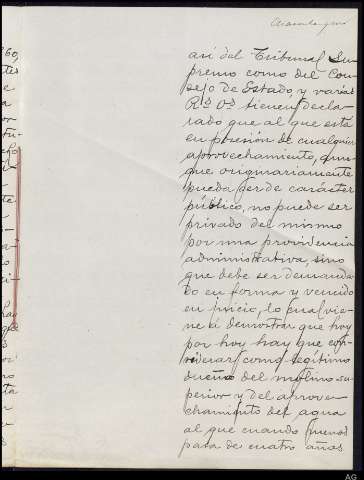 así del Tribunal Su-
premo como del Con
sejo de Estado, y varias
Rs Os tienen decla-
rado que al que está
en posesión de cualquier
aprovechamiento, aun-
que originariamente
pueda ser de carácter
público, no puede ser
privado del mismo
por una providencia
administrativa, sino
que debe ser demanda
do en forma y vencido
en juicio, lo cual vie-
ne á demostrar que hoy
por hoy hay que con-
siderar como legítimo
dueño del molino su-
perior y del aprove-
chamiento del agua
al que cuando menos
pasa de cuatro años
AG